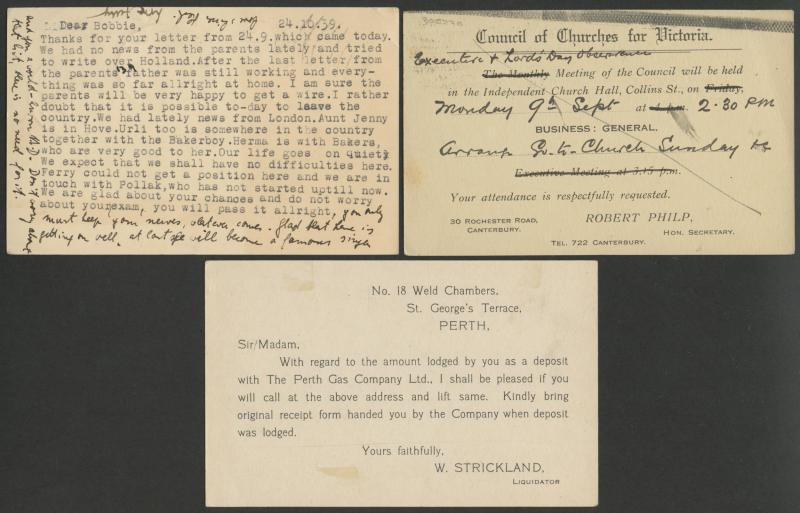 Dear Bobbie, 24.10.39.
Thanks for your letter from 24.9.which came today.
We had no news from the parents lately and tried
to write over Holland.After the last letter from
the parents father was still working and every-
thing was so far allright at home. I am sure the
parents will be very happy to get a wire.I rather
doubt that it is possible to-day to leave the
country.We had lately news from London.Aunt Jenny
is in Hove.Urli too is somewhere in the country
together with the Bakerboy.Herma is with Bakers,
who are very good to her.Our life goes on quiet;
We expect that we shall have no difficulties here.
Ferry could not get a position here and we are in
touch with Pollak,who has not started uptill now.
We are glad about your chances and do not worry
about yourexam, you will pass it allright, you only
must keep your nerves, whatever comes. Glad that Lene is
getting on well, at last she will become a famous singer
and you a world-known MD. Don't worry about
that bit, there is no need for it.
Council of Churches for Victoria.
Executive & Lord's Day Observance
The Monthly Meeting of the Council will be held
in the Independent Church Hall, Collins St., on Friday,
Monday 9th Sept at 2.30 PM
BUSINESS: GENERAL.
Arrange Go-to-Church Sunday
Executive Meeting at 3.15 p.m.
Your attendance is respectfully requested.
30 ROCHESTER ROAD,
CANTERBURY.
ROBERT PHILP,
HON. SECRETARY.
TEL. 722 CANTERBURY.
No. 18 Weld Chambers,
St. George's Terrace,
PERTH,
Sir/Madam,
With regard to the amount lodged by you as a deposit
with The Perth Gas Company Ltd., I shall be pleased if you
will call at the above address and lift same. Kindly bring
original receipt form handed you by the Company when deposit
was lodged.
Yours faithfully,
W. STRICKLAND,
LIQUIDATOR